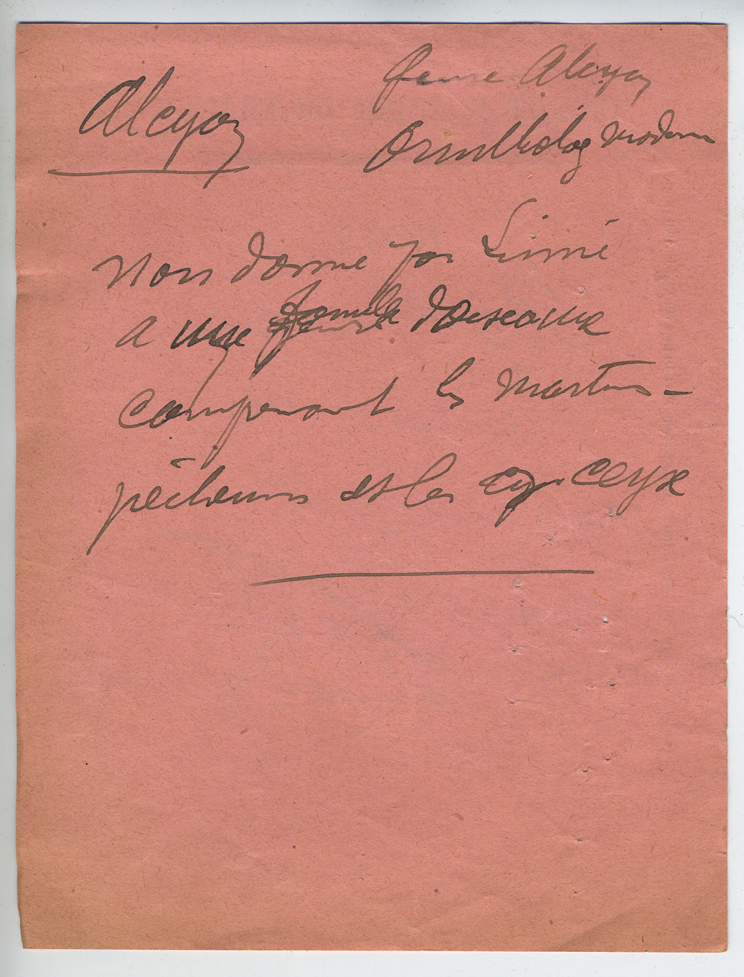 Alcyon
genre Alcyon
Ornitholog moderne
Nom donné par Linné
a une famille d'oiseaux
comprenant les martins-
pêcheurs et les ceyx